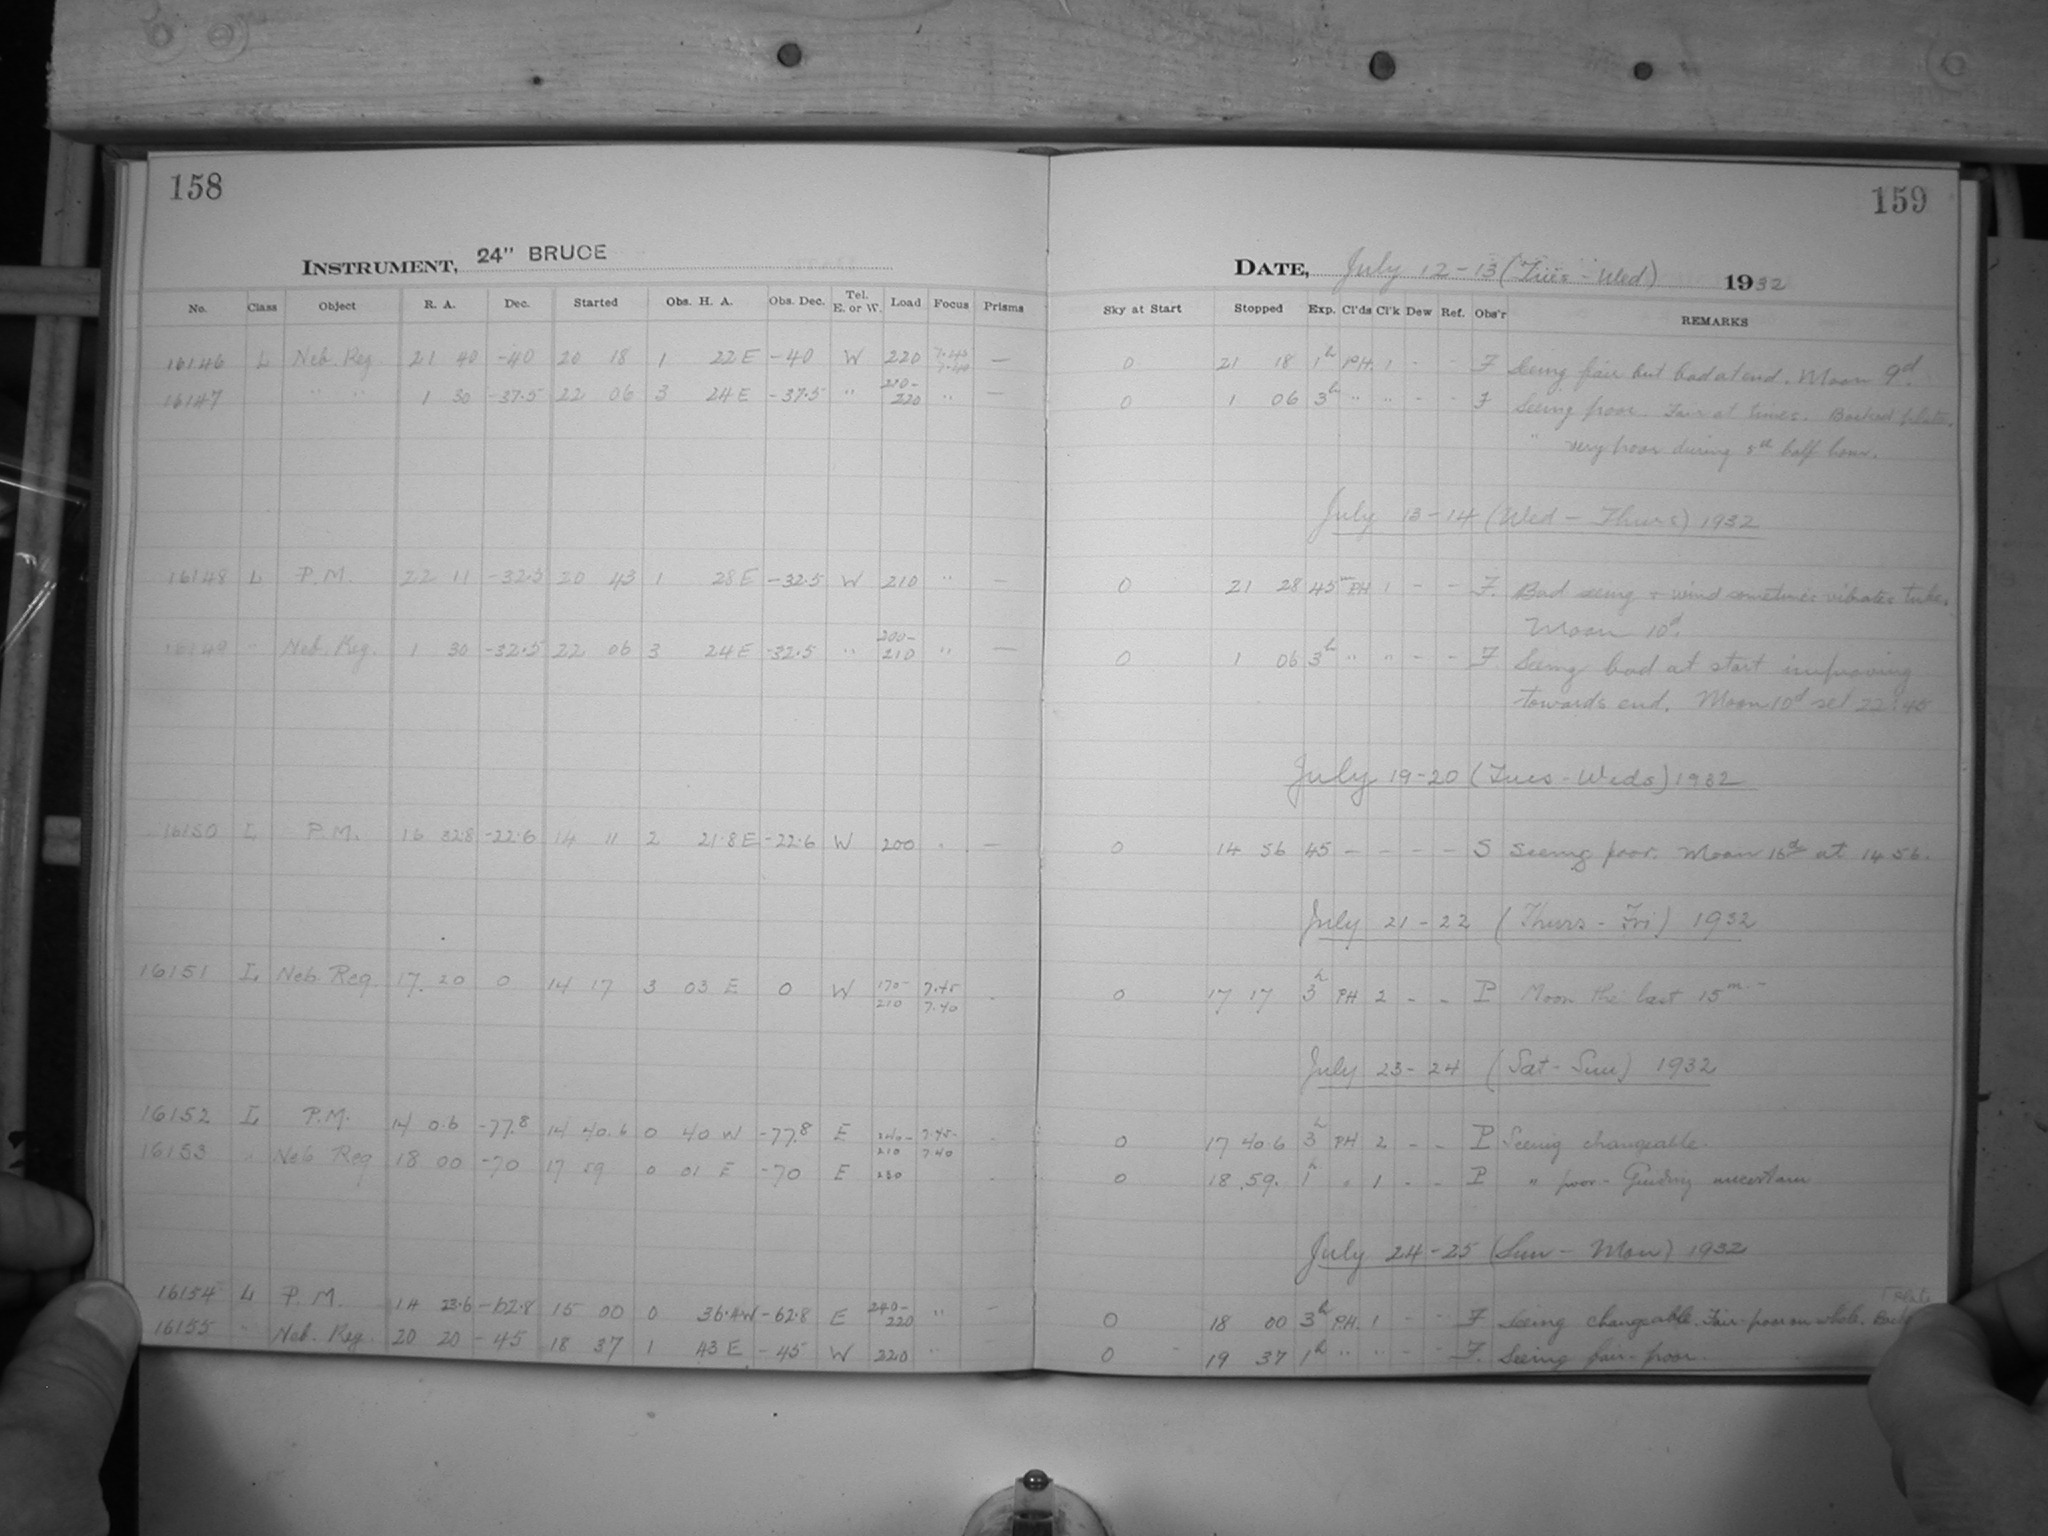 158
INSTRUMENT, 24" BRUCE
No. Class Object R. A. Dec. Started Obs. H. A. Obs. Dec. Tel. E. or W. Load Focus Prisms
16146 L Neb. Reg. 21 40 -40 20 18 1 22 E -40 W 220 7.45 7.40 —
16147 " " 1 30 -37.5 22 06 3 24 E -37.5 " 210- 220 " —
16148 L P.M. 22 11 -32.5 20 43 1 28 E -32.5 W 210 " —
16149 " Neb. Reg. 1 30 -32.5 22 06 3 24 E -32.5 " 200- 210 " —
16150 L P.M. 16 32.8 -22.6 14 11 2 21.8 E -22.6 W 200 " —
16151 L Neb. Reg. 17 20 0 14 17 3 03 E 0 W 170- 210 7.45 7.40 -
16152 L P.M. 14 0.6 -77.8 14 40.6 0 40 W -77.8 E 240- 210 7.45- 7.40 -
16153 " Neb Reg 18 00 -70 17 59 0 01 E -70 E 230 -
16154 L P.M. 14 23.6 -62.8 15 00 0 36.4 W -62.8 E 240- 220 " —
16155 " Neb. Reg. 20 20 -45 18 37 1 43 E -45 W 220 "
159
DATE, July 12-13 (Tues - Wed) 1932
Sky at Start Stopped Exp. Cl'ds Cl'k Dew Ref. Obs'r REMARKS
0 21 18 1h PH. 1 - - F Seeing fair but bad at end. Moon 9d.
0 1 06 3h " " - - F Seeing poor. Fair at times. Backed plate.
" very poor during 5th half hour.
July 13-14 (Wed - Thurs) 1932
0 21 28 45m PH 1 - - F. Bad seeing & wind sometimes vibrates tube.
Moon 10d.
0 1 06 3h " " - - F Seeing bad at start improving
towards end. Moon 10d set 22:45
July 19-20 (Tues - Weds) 1932
0 14 56 45 - - - - S Seeing poor. Moon 16d at 14 56.
July 21-22 (Thurs - Fri) 1932
0 17 17 3h PH 2 - - P Moon the last 15m.-
July 23-24 (Sat - Sun) 1932
0 17 40.6 3h PH 2 - - P Seeing changeable.
0 18 59. 1h " 1 - - P " poor - Guiding uncertain
July 24-25 (Sun - Mon) 1932
0 18 00 3h P.H. 1 - - F Seeing changeable. Fair-poor on whole.
0 19 37 1h " " - - F. Seeing fair-poor.